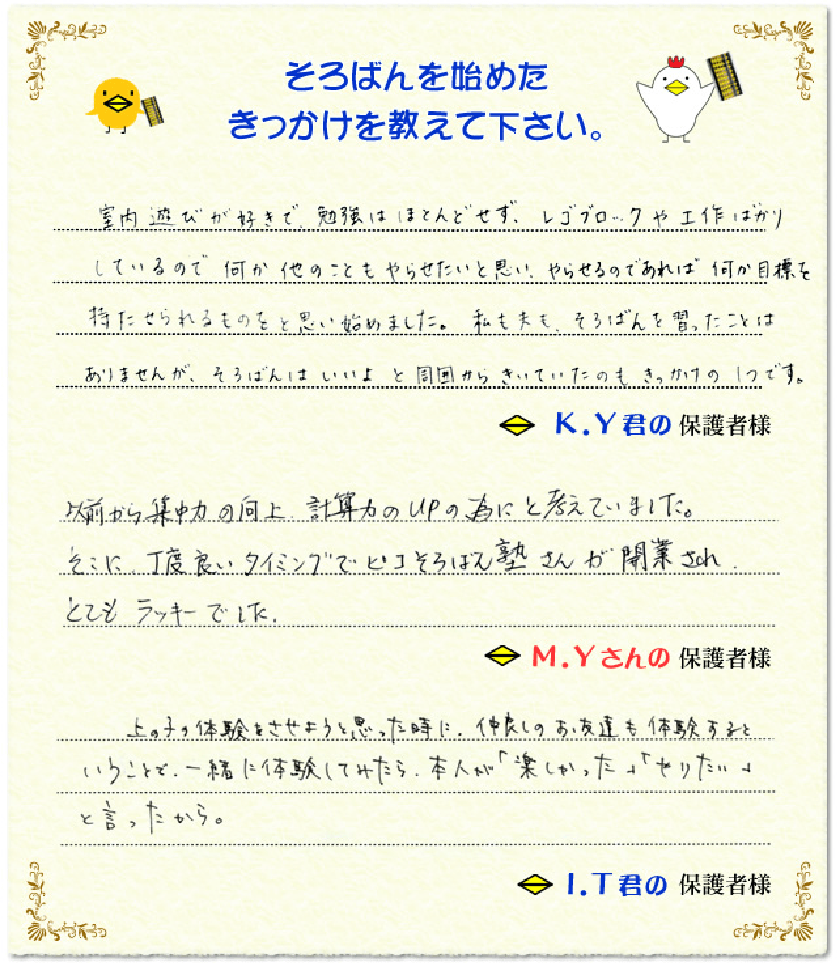 そろばんを始めた
きっかけを教えて下さい。
室内遊びが好きで、勉強はほとんどせず、レゴブロックや工作ばかり
しているので何か他のこともやらせたいと思い、やらせるのであれば何か目標を
持たせられるものをと思い始めました。私も夫も、そろばんを習ったことは
ありませんが、そろばんはいいよと周囲からきいていたのもきっかけの1つです。
K.Y君の保護者様
以前から集中力の向上、計算力のUPの為にと考えていました。
そこに、丁度良いタイミングでピコそろばん塾さんが開業され、
とてもラッキーでした。
M.Yさんの保護者様
上の子の体験をさせようと思った時に、仲良しのお友達も体験すると
いうことで、一緒に体験してみたら、本人が「楽しかった」「やりたい」
と言ったから。
I.T君の保護者様